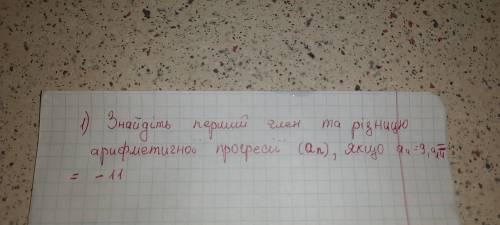 1) Знайдіть перший член та різницю
арифметичної прогресії (an), якщо a4 = 9,
= -11